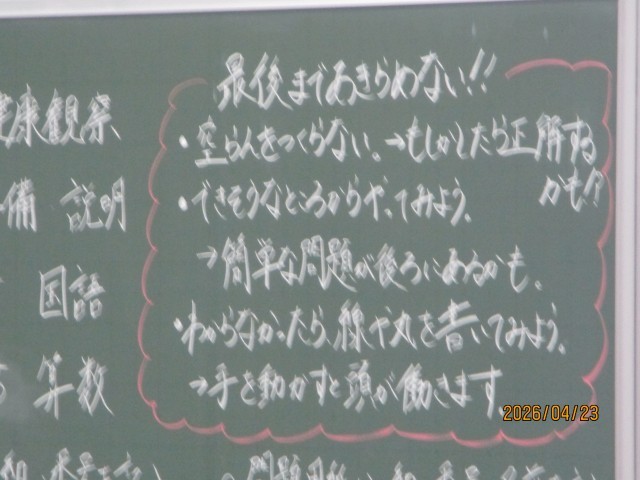 最後まであきらめない!!
・空らんをつくらない。→もしかしたら正解する
かも!?
・できそうなところからやってみよう。
→簡単な問題が後ろにあるかも。
・わからなかったら、線や丸を書いてみよう。
→手を動かすと頭が働きます。
康観察
備 説明
国語
算数
2026/04/23